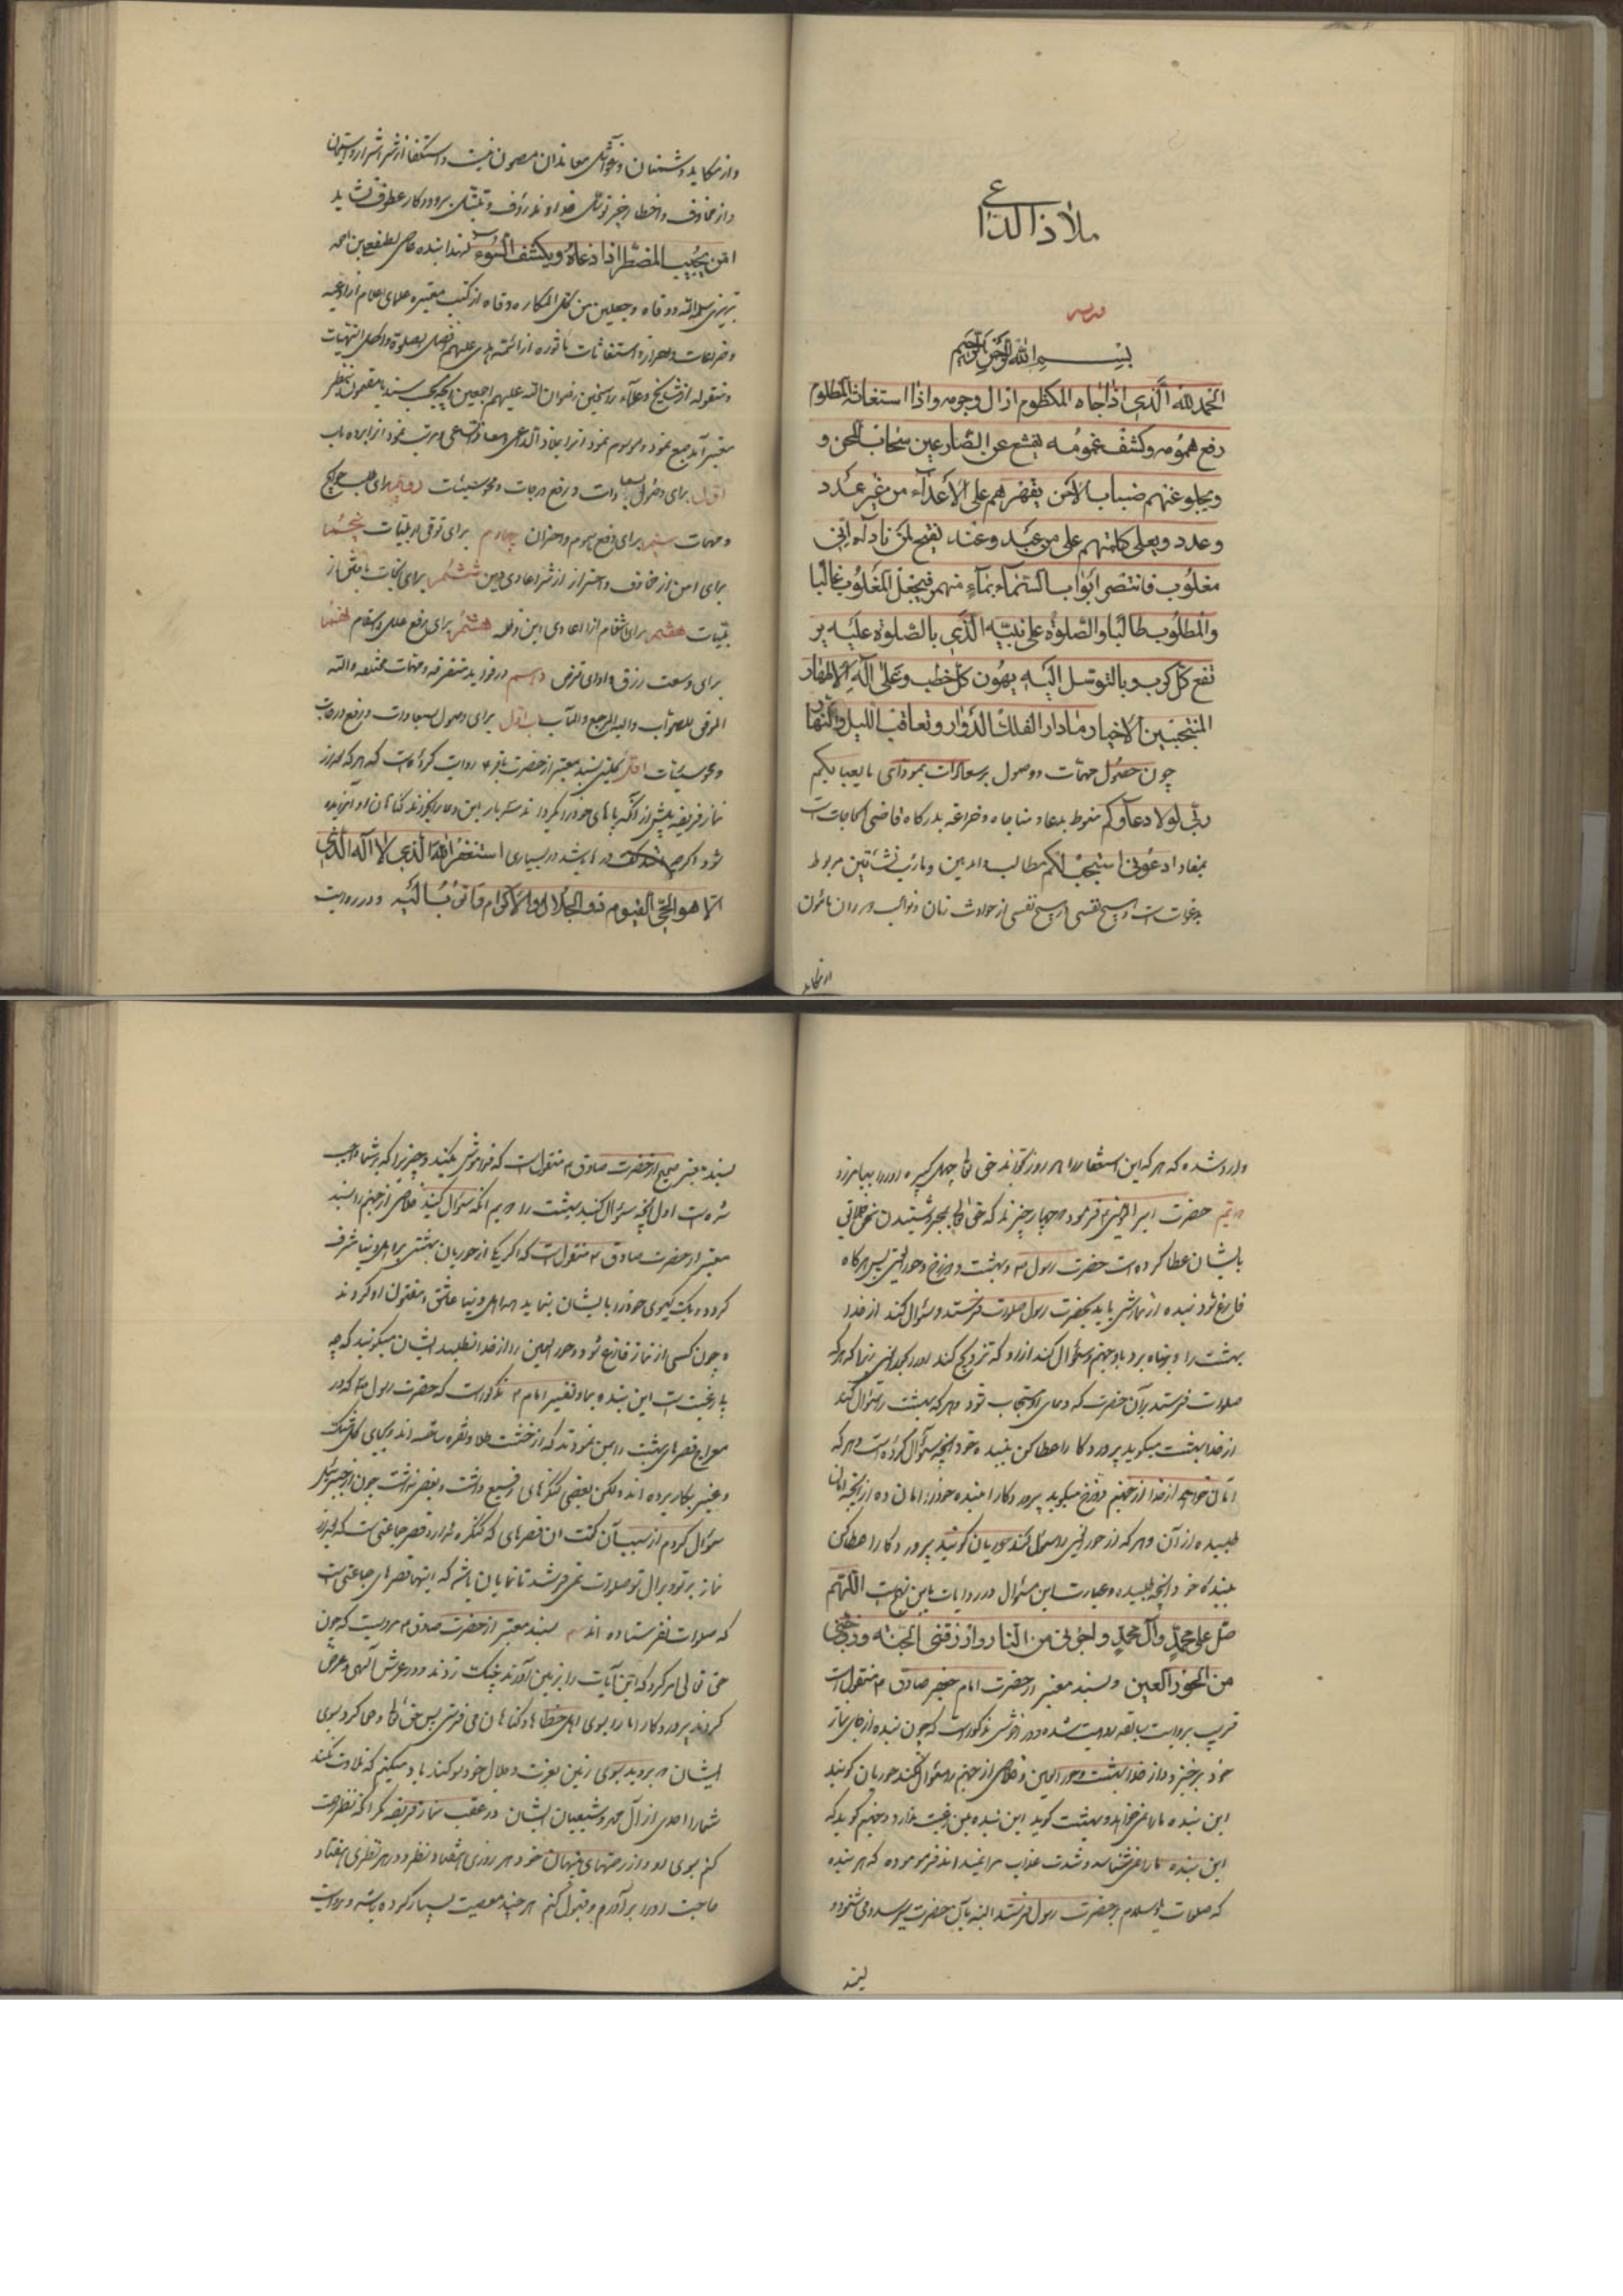 ملاذ الداعی
بسم الله الرحمن الرحیم
الحمد لله الذی اذا ناجاه المکظوم ازال وجومه واذا استغاثه المظلوم
رفع همومه وکشف غمومه یقشع عن الضارعین سحاب المحن و
ویجلو عنهم ضباب الاحن یقهرهم علی الاعداء من غیر عدد
وعدد ویعلی کلمتهم علی من عَبَد وعند یفتح لمن ناداه انی
مغلوب فانتصر ابواب السماء بماء منهمر فیجعل المغلوب غالبا
والمطلوب طالبا والصلوة علی نبیه الذی بالصلوة علیه یر
تفع کل کرب وبالتوسل الیه یهون کل خطب وعلی اله الاطهار
المنتجبین الاخیار مادار الفلک الدوار وتعاقب اللیل والنهار
چون حصول مهمات ووصول بر سعادات بمودای ما یعبا بکم
ربی لولا دعاؤکم منوط بدعا و مناجاه و ضراعه بدرکاه قاضی الحاجات است
بمفاد ادعونی استجب لکم مطالب دارین و مآرب نشأتین مربوط
بدعوات است و هیچ نفسی از هیچ نفسی از حوادث زمان و نوائب دوران مامون
از مکاید
واز مکاید دشمنان و غوائل معاندان مصون نیست و استکفا از شر اشرار
واز مخاوف و اخطار بجز توسل خداوند رؤف و تبتل پروردکار عطوف نشاید
امن یجیب المضطر اذا دعاه ویکشف السوء لهذا بنده عاصی لطفعلی بن احمد
تبریزی سلمه الله ووقاه وجعلنی من کل المکاره وقاه از کتب معتبره علمای اعلام از ادعیه
وضراعات و احراز و استغاثات ماثوره از ائمه هدی علیهم افضل الصلوة واکمل التحیات
ومنقوله از مشایخ و علماء راسخین رضوان الله علیهم اجمعین آنچه بحسب سند یا مضمون بنظر
معتبر آمد جمع نمود و موسوم نمود انرا بملاذ الداعی ومعاذ الساعی ومرتب نمود انرا بر ده باب
اول برای وصول سعادات و رفع درجات و محو سیئات دویم برای طلب حوایج
ومهمات سیم برای دفع هموم و احزان چهارم برای توقی از بلیات پنجم
برای امن از مخاوف و احتراز از شر اعادی دین ششم برای نجات یافتن از
بلیات هفتم برای انتقام از اعادی دین هشتم برای رفع علل و اسقام نهم
برای وسعت رزق و ادای قرض دهم در فواید متفرقه و مهمات مختلفه والله
الموفق للصواب والیه المرجع والمآب باب اول برای وصول سعادات و رفع درجات
و محو سیئات اول کلینی بسند معتبر از حضرت باقر ع روایت کرده است که هر که بعد از
نماز فریضه پیش از آنکه پاهای خود را بکرداند سه بار این دعا را بخواند کناهان او آمرزیده
شود اکرچه مثل کف دریا باشد در بسیاری استغفر الله الذی لا اله الا
الا هو الحی القیوم ذو الجلال والاکرام واتوب الیه و در روایت
وارد شده که هر که این استغفار را هر روز بخواند حق تعالی چهل کبیره او را بیامرزد
دویم حضرت امیر المؤمنین ع فرمود که چهار چیزند که حق تعالی بهر یک شنیدن سخن خلایق
بایشان عطا کرده است حضرت رسول ص و بهشت و دوزخ و حورالعین پس هرکاه
فارغ شود بنده از نمازش باید بحضرت رسول صلوات فرستد و سؤال کند از خدا
بهشت را و پناه برد باو از جهنم و سؤال کند از او که تزویج کند او را بحورالعین زیرا که هر که
صلوات فرستد بر آن حضرت که دعای او مستجاب شود و هر که بهشت را سؤال کند
از خدا بهشت میکوید پروردکارا عطا کن ببنده خود آنچه سؤال کرده است و هر که
امان خواهد از خدا از جهنم دوزخ میکوید پروردکارا بنده خود را امان ده از آنچه امان
طلبیده از آن و هر که از حورالعین را سؤال کند حوریان کویند پروردکارا عطا کن
ببنده خود آنچه طلبیده و عبارت این سؤال در روایات باین نهج است اللهم
صل علی محمد وآل محمد واجرنی من النار وارزقنی الجنه وزوجنی
من الحور العین و بسند معتبر از حضرت امام جعفر صادق ع منقول است
قریب بروایت سابقه روایت شده و در آخرش مذکور است که چون بنده از جای نماز
خود برخیزد و از خدا بهشت و حورالعین و خلاصی از جهنم را سؤال نکند حوریان کویند
این بنده ما را نمیخواهد و بهشت کوید این بنده بمن رغبت ندارد و جهنم کوید که
این بنده مرا نمیشناسد و شدت عذاب مرا نمیداند فرموده که هر بنده
که صلوات و سلام بر حضرت رسول فرستد البته بآن حضرت میرسد و می شنود و
بسند
بسند معتبر صحیح از حضرت صادق ع منقول است که فراموش مکنید دو چیز را که بر شما واجب
شده است اول آنچه سؤال کنید بهشت را دویم آنکه سؤال کنید خلاصی از جهنم را بسند
معتبر از حضرت صادق ع منقول است که اکر یکی از حوریان بهشتی بر اهل دنیا مشرف
کردد و یک کیسوی خود را بایشان بنماید هر آینه اهل دنیا عاشق و مفتون او کردند
و چون کسی از نماز فارغ شود و حورالعین را از خدا نطلبد ایشان میکویند که چه
بارغبت است این بنده بما و تفسیر امام ع مذکور است که حضرت رسول ص که در
معراج قصرهای بهشت را بمن نمودند که از خشت طلا و نقره ساخته اند و بجای کل مشک
وعنبر بکار برده اند ولکن بعضی کنکره های رفیع داشت و بعضی نداشت چون از جبرئیل
سؤال کردم از سبب آن کفت ان قصرهای که کنکره ندارد قصر جماعتی است که بعد از
نماز بر تو و بر ال تو صلوات نمی فرستند تا نمایان باشد که اینها قصرهای جماعتی است
که صلوات نفرستاده اند سیم بسند معتبر از حضرت صادق ع مرویست که چون
حق تعالی امر کرد که این آیات را بزمین آورند چنک زدند در عرش الهی و عرض
کردند پروردکارا ما را بسوی اهل خطاها و کناهان می فرستی پس حق تعالی وحی کرد بسوی
ایشان که بروید بسوی زمین بعزت و جلال خود سوکند یاد میکنم که تلاوت نکند
شما را احدی از آل محمد و شیعیان ایشان در عقب نماز فریضه مکر آنکه نظر رحمت
کنم بسوی او و از رحمتهای پنهان خود هر روزی هفتاد نظر و در هر نظری هفتاد
حاجت او را برآورم و قبول کنم هر چند معصیت بسیار کرده باشد و بروایت